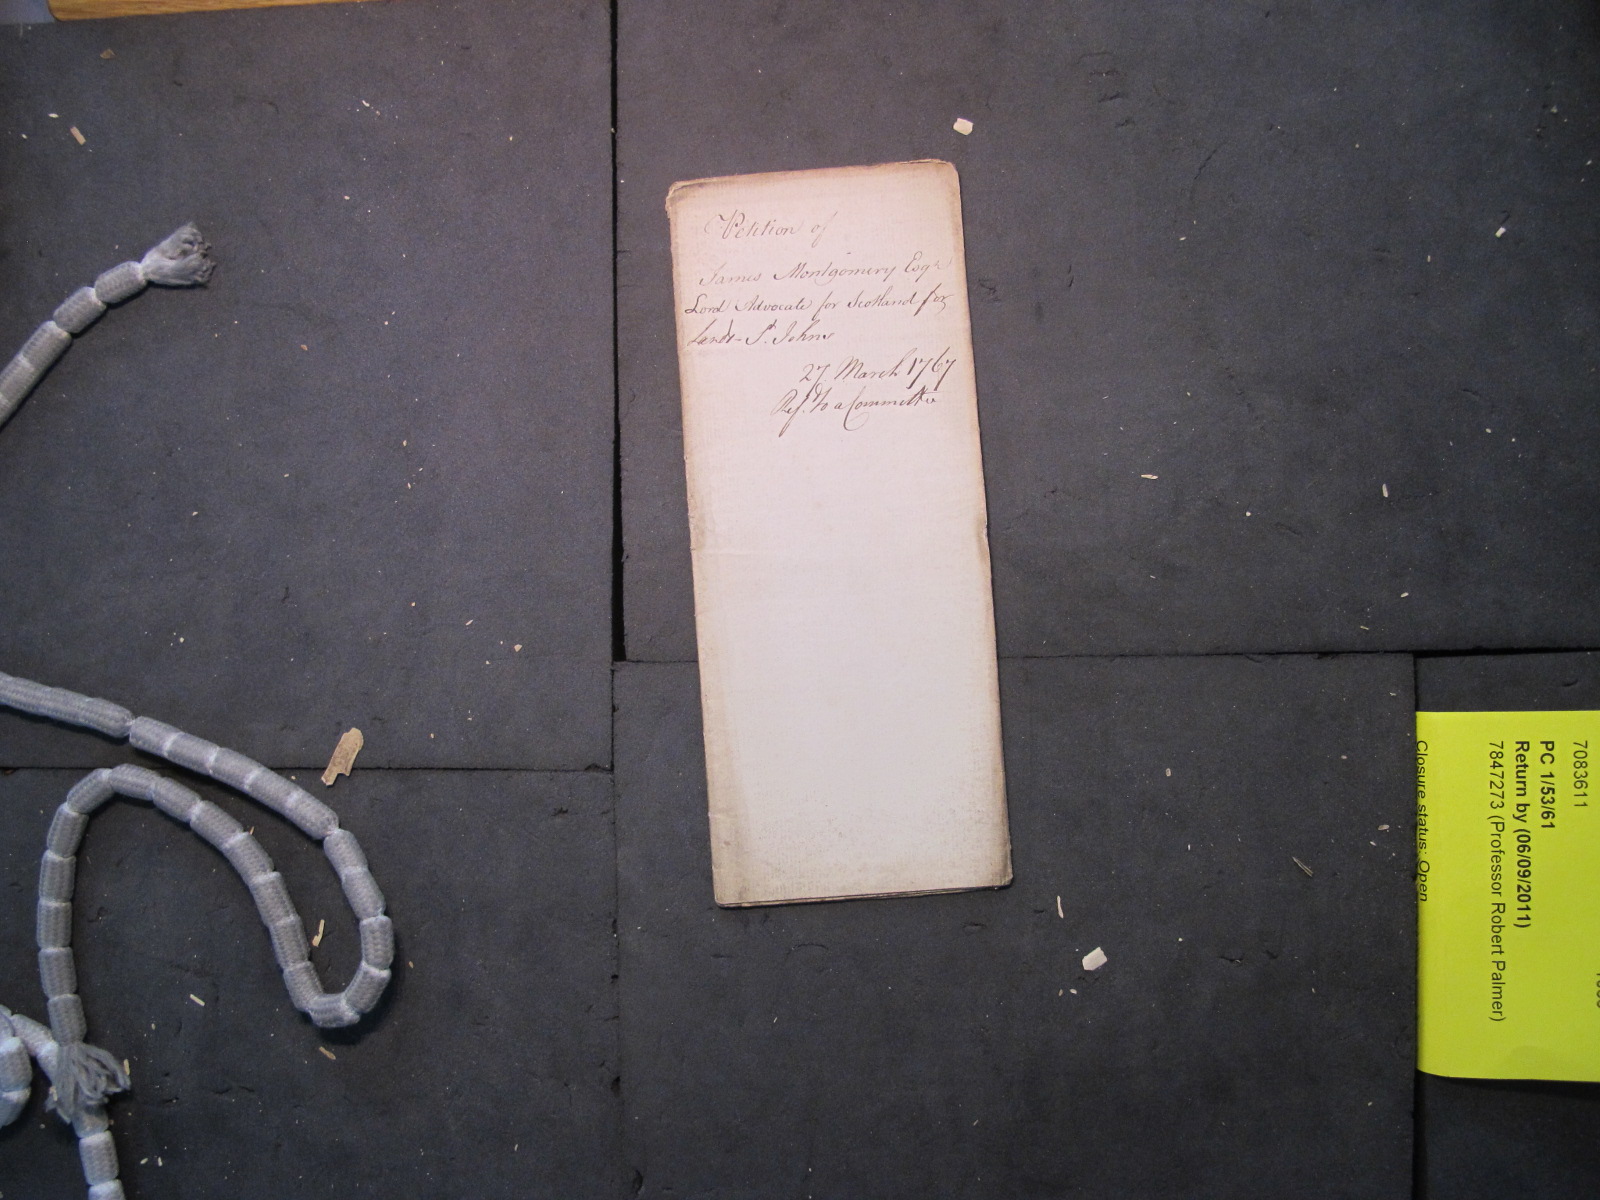 Petition of
James Montgomery Esqr
Lord Advocate for Scotland for
Lands - St. Johns
27 March 1767
Refd. to a Committee
7083611
PC 1/53/61
Return by (06/09/2011)
7847273 (Professor Robert Palmer)
Closure status: Open